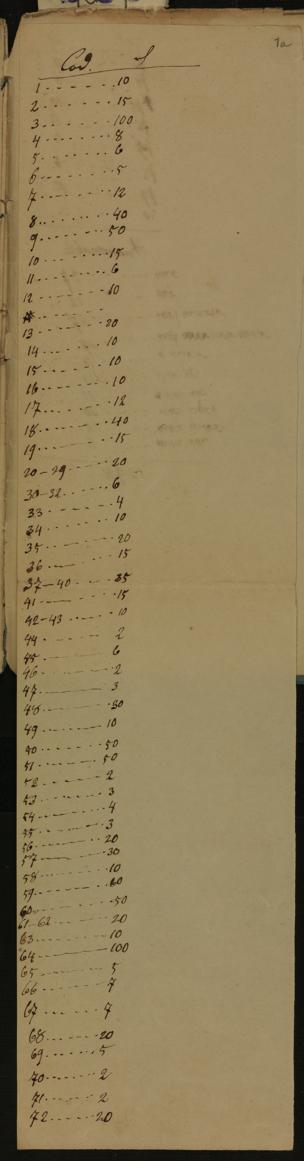 1a
Cod. f
1 ------- 10
2 ------- 15
3 ------- 100
4 ------- 8
5 ------- 6
6 ------- 5
7 ------- 12
8 ------- 40
9 ------- 50
10 ------- 15
11 ------- 6
12 ------- 10
13 ------- 20
14 ------- 10
15 ------- 10
16 ------- 10
17 ------- 12
18 ------- 40
19 ------- 15
20-29 ------- 20
30-32 ------- 6
33 ------- 4
34 ------- 10
35 ------- 20
36 ------- 15
37-40 ------- 35
41 ------- 15
42-43 ------- 10
44 ------- 2
45 ------- 6
46 ------- 2
47 ------- 3
48 ------- 30
49 ------- 10
50 ------- 50
51 ------- 50
52 ------- 2
53 ------- 3
54 ------- 4
55 ------- 3
56 ------- 20
57 ------- 30
58 ------- 10
59 -------
60 ------- 50
61-62 ------- 20
63 ------- 10
64 ------- 100
65 ------- 5
66 ------- 7
67 ------- 7
68 ------- 20
69 ------- 5
70 ------- 2
71 ------- 2
72 ------- 20